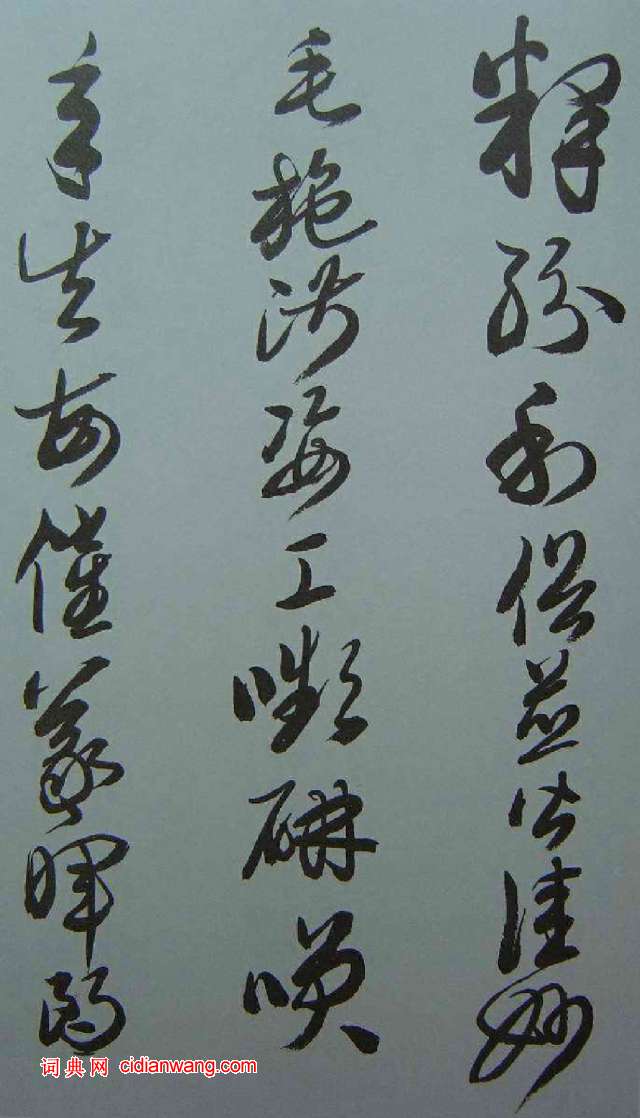 釋紛利俗並皆佳妙
毛施淑姿工嚬研咲
年矢每催羲暉朗
词典网 cidianwang.com